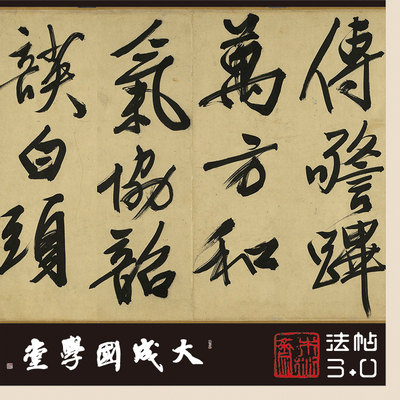 傳警蹕
萬方和
氣協韶
談白頭
大成國學堂
法帖
3.0